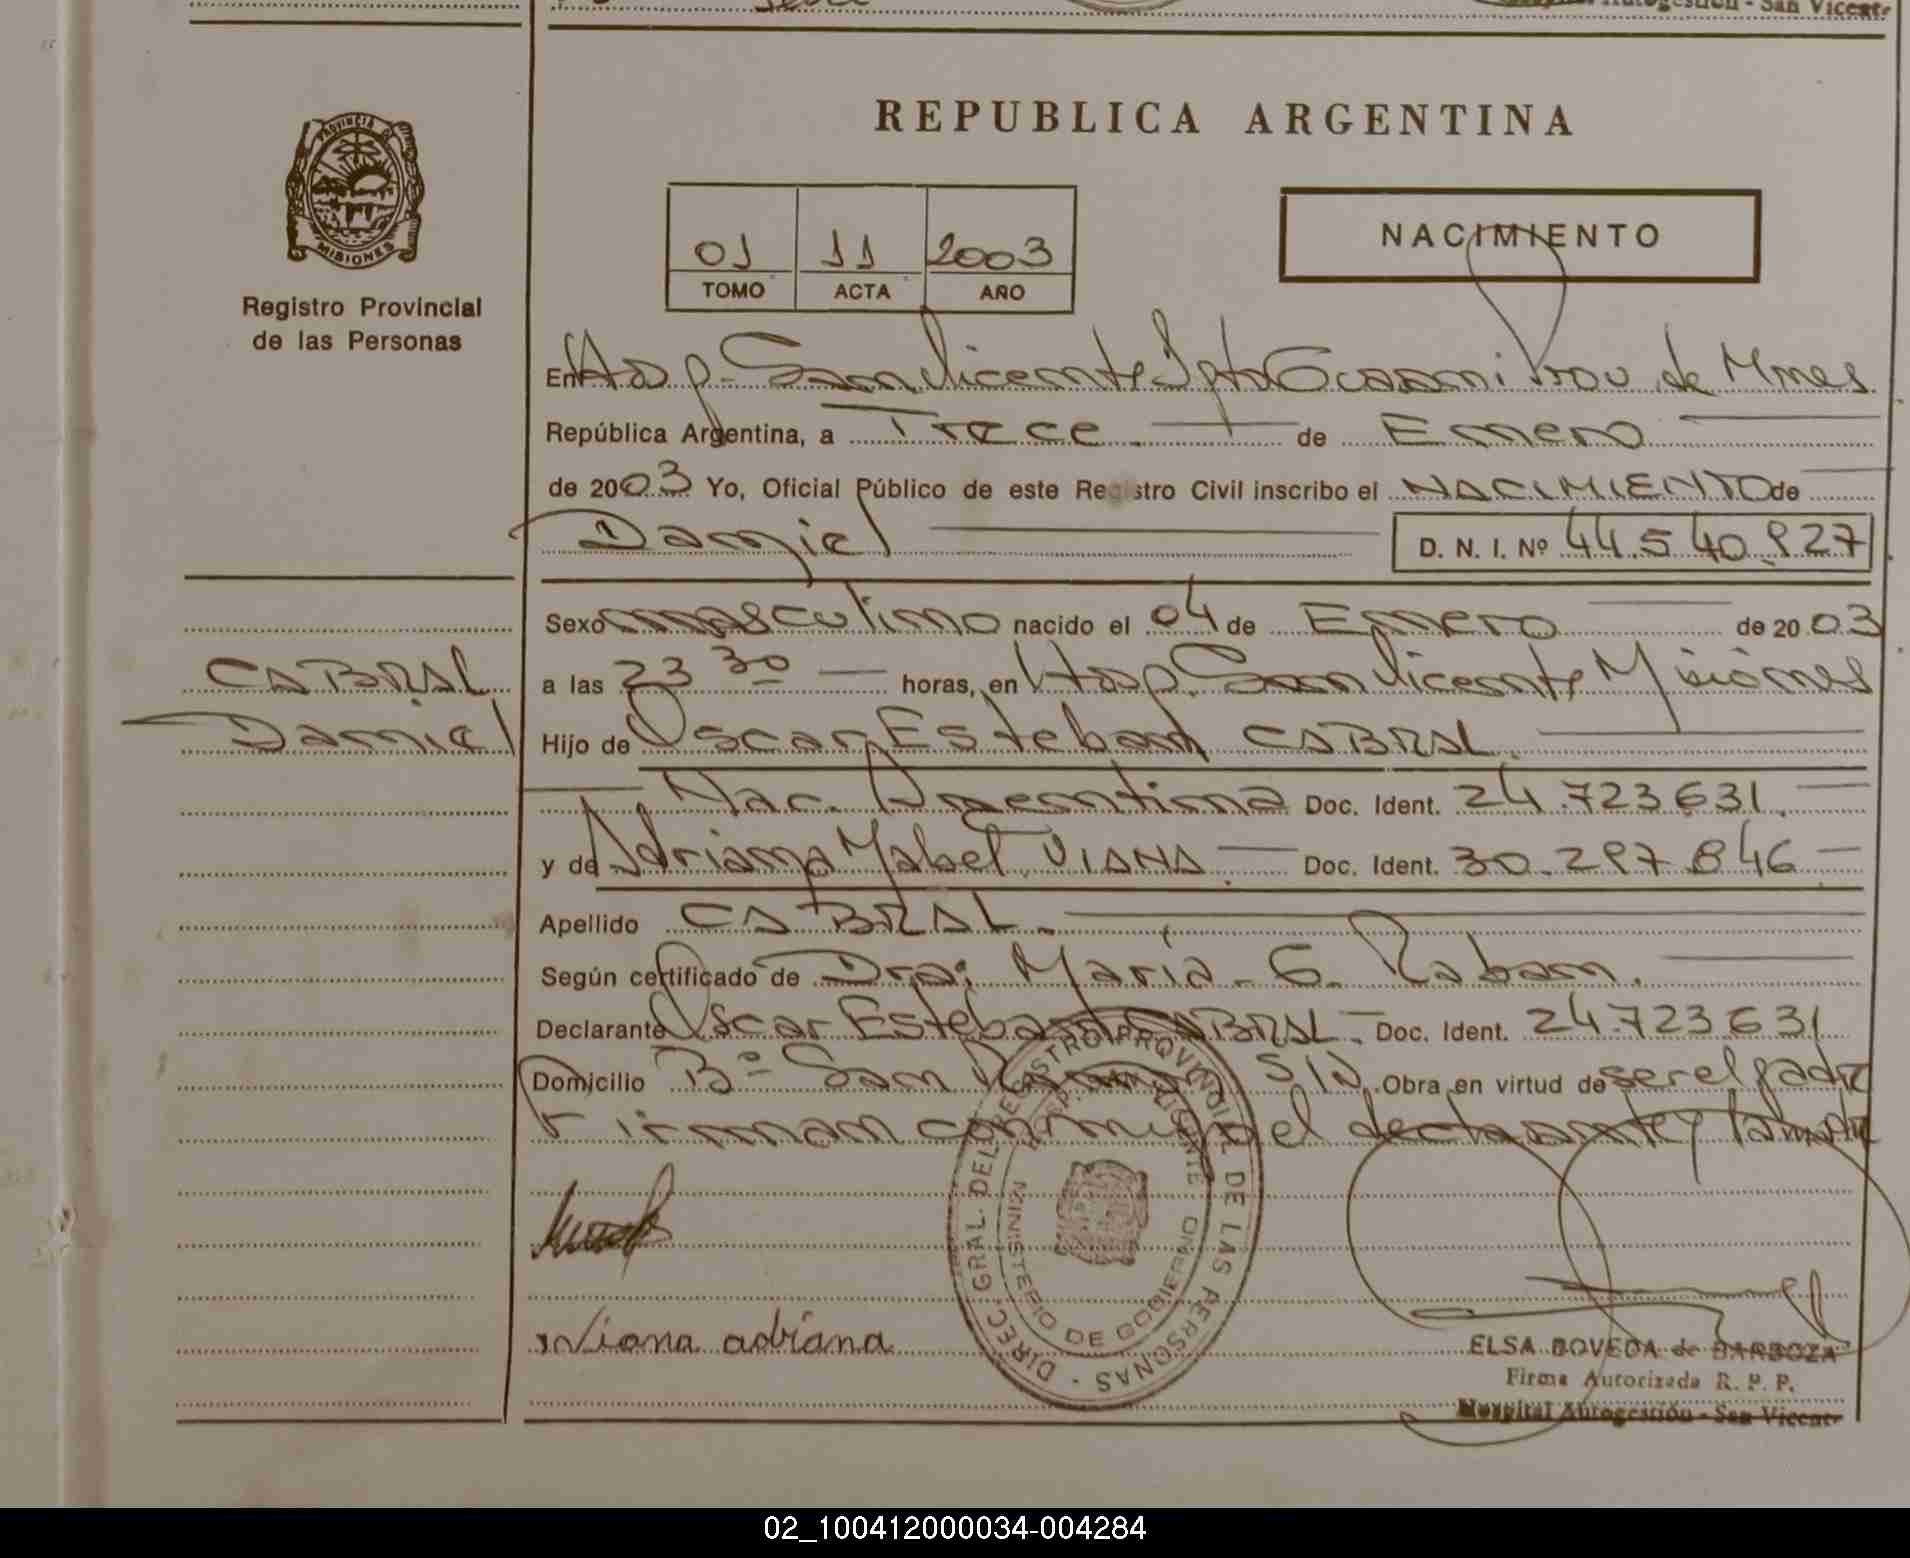 Autogestión - San Vicente
REPUBLICA ARGENTINA
PROVINCIA DE
MISIONES
Registro Provincial
de las Personas
01 11 2003
TOMO ACTA AÑO
NACIMIENTO
En Hosp. San Vicente Dpto Guarani Prov de Mnes
República Argentina, a Trece de Enero
de 2003 Yo, Oficial Público de este Registro Civil inscribo el NACIMIENTO de
Daniel D. N. I. Nº 44.540.927
Sexo masculino nacido el 04 de Enero de 2003
CABRAL
a las 23 30 horas, en Hosp. San Vicente Misiones
Daniel
Hijo de Oscar Esteban CABRAL.
Nac. Argentina Doc. Ident. 24.723.631.
y de Adriana Mabel VIANA Doc. Ident. 30.297.846
Apellido CABRAL.
Según certificado de Dra: Maria G. Raban.
Declarante Oscar Esteban CABRAL Doc. Ident. 24.723.631
Domicilio Bº San S/N. Obra en virtud de ser el padre
Firman conmigo el declarante y la madre
DIREC. GRAL. DEL REGISTRO PROVINCIAL DE LAS PERSONAS
MINISTERIO DE GOBIERNO
Viana adriana
ELSA BOVEDA de BARBOZA
Firma Autorizada R. P. P.
Hospital Autogestión - San Vicente
02_100412000034-004284